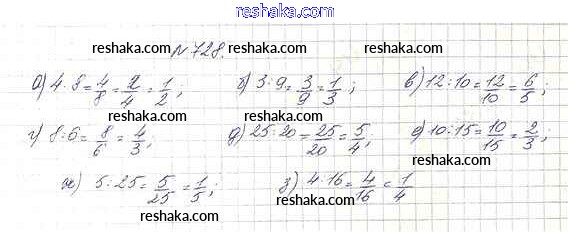 www.reshaka.com
reshaka.com
reshaka.com
№728.
reshaka.com
а) 4:8=4/8=2/4=1/2; б) 3:9=3/9=1/3; в) 12:10=12/10=6/5;
reshaka.com
reshaka.com
reshaka.com
г) 8:6=8/6=4/3; д) 25:20=25/20=5/4; е) 10:15=10/15=2/3;
reshaka.com
reshaka.com
reshaka.com
ж) 5:25=5/25=1/5; з) 4:16=4/16=1/4
reshaka.com
reshaka.com